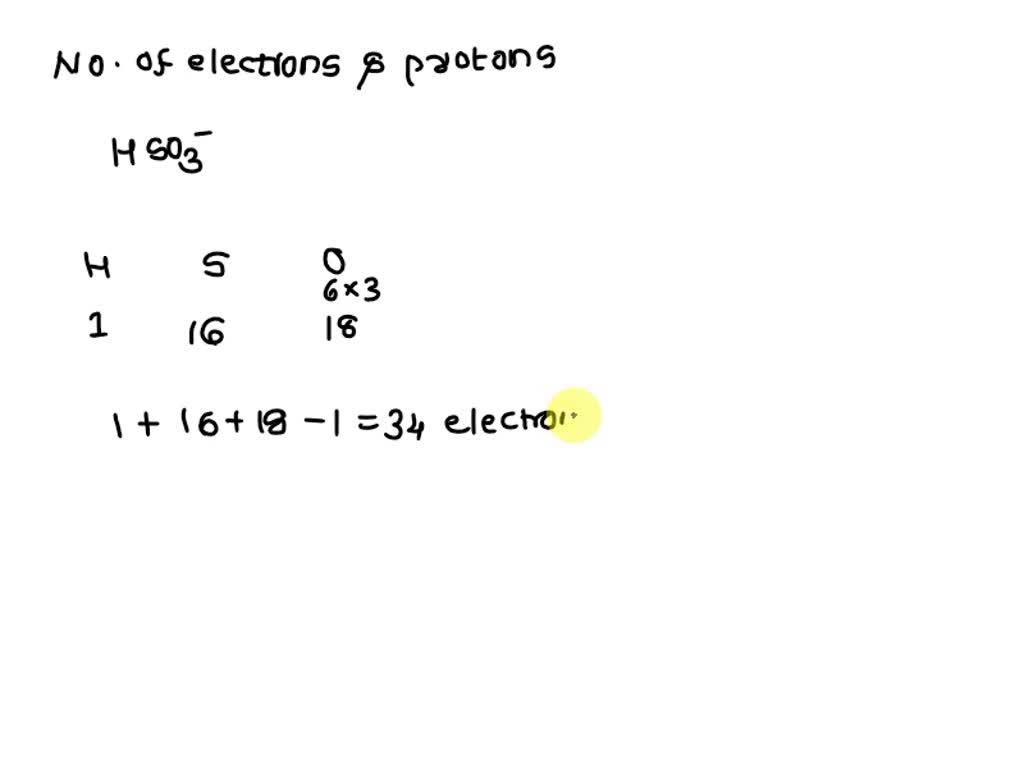 No. of electrons & protons
HSO3⁻
H S O
6×3
1 16 18
1 + 16 + 18 - 1 = 34 electron